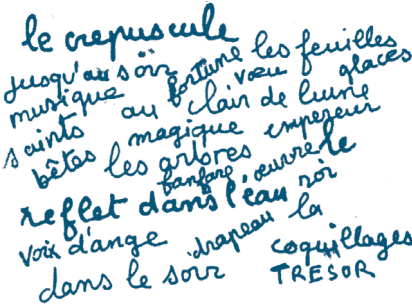 le crepuscule
jusqu'au soir fortune les feuilles
musique au vœu glaces
saints clair de lune
bêtes magique empereur
les arbres
fanfare œuvre le
reflet dans l'eau soir
voix d'ange drapeau la
dans le soir coquillages
TRESOR